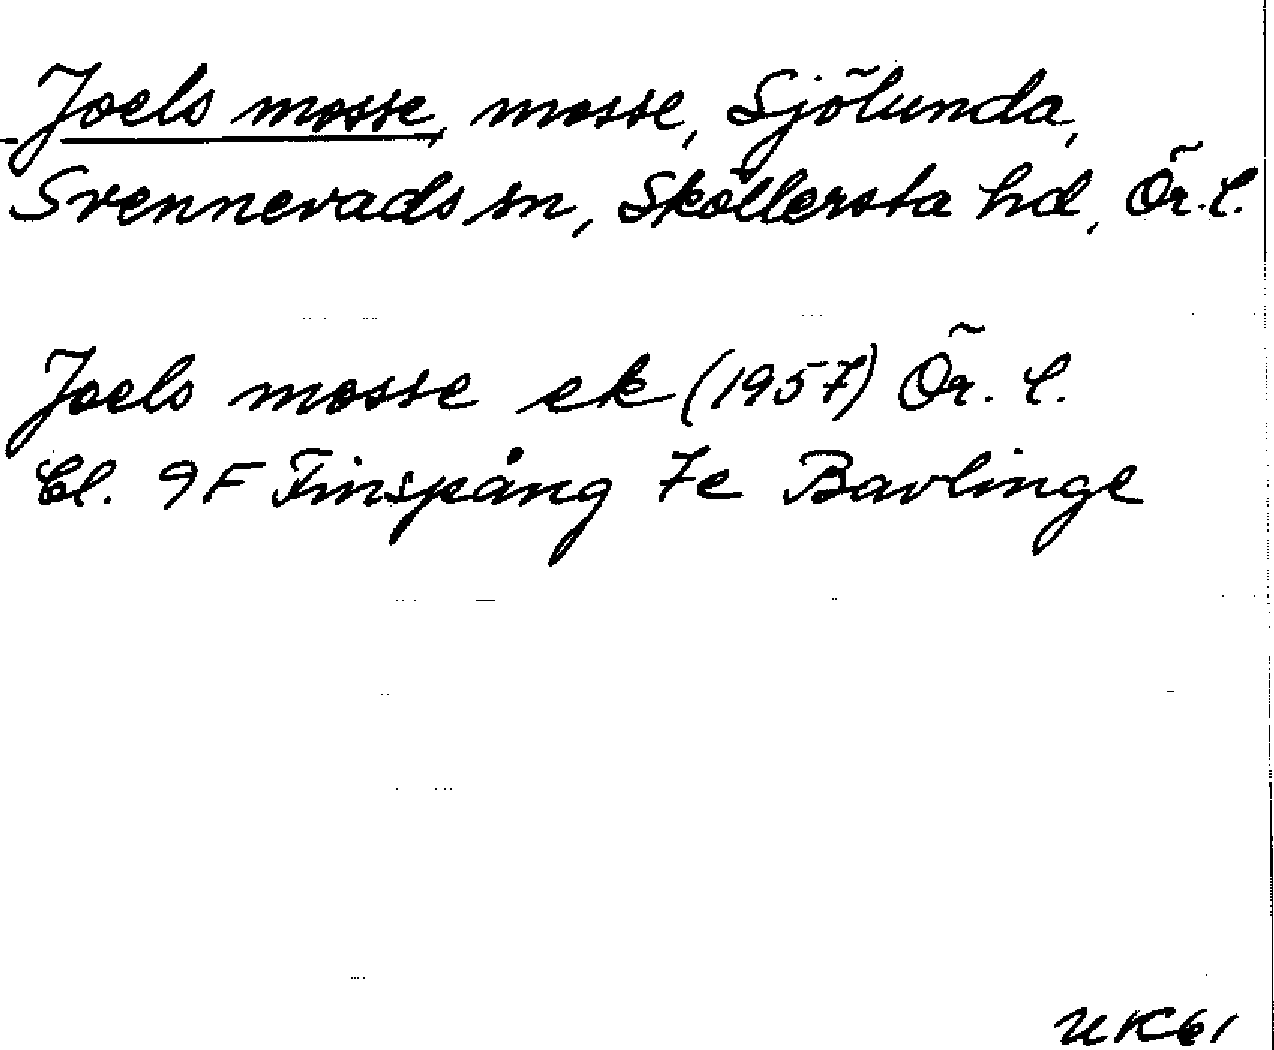 Joels mosse, mosse, Sjölunda,
Svennevads sn, Sköllersta hd, Ör. l.
Joels mosse ek (1957) Ör. l.
Bl. 9F Finspång 7e Bavlinge
UK61